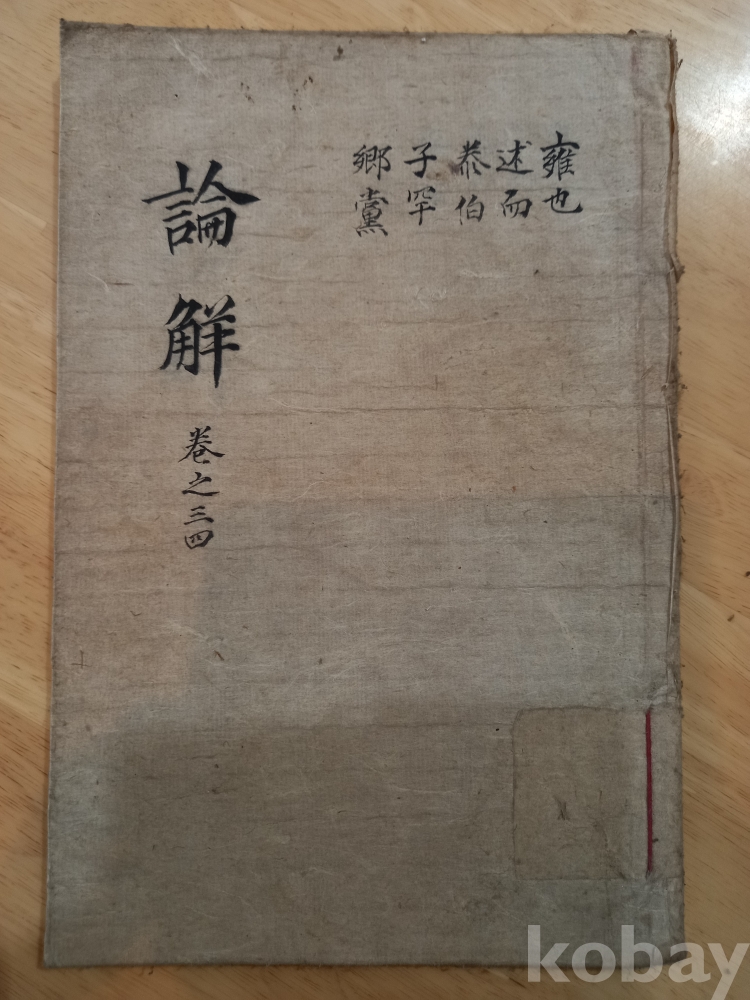 雍也
述而
泰伯
子罕
鄉黨
論解
卷之三四
kobay